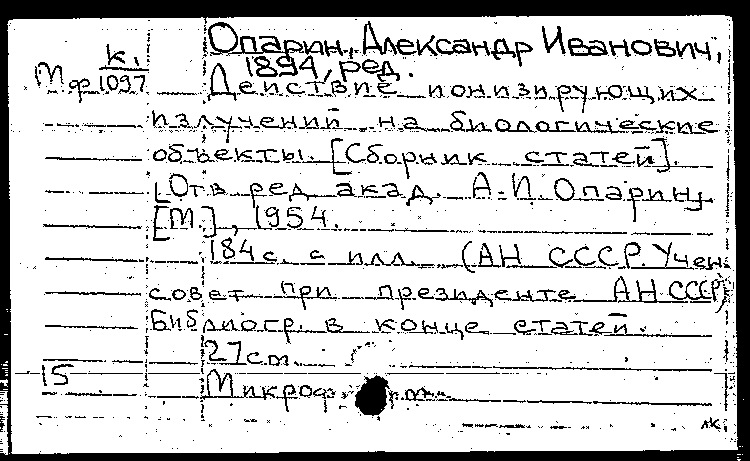 Опарин, Александр Иванович,
к. 1894, ред.
Мф 1097 Действие ионизирующих
излучений на биологические
объекты. [Сборник статей].
[Отв ред акад. А.И. Опарин]
[М.], 1954.
184 с. с илл. (АН СССР. Учен
совет при президенте АН СССР)
Библиогр. в конце статей.
27 см.
15